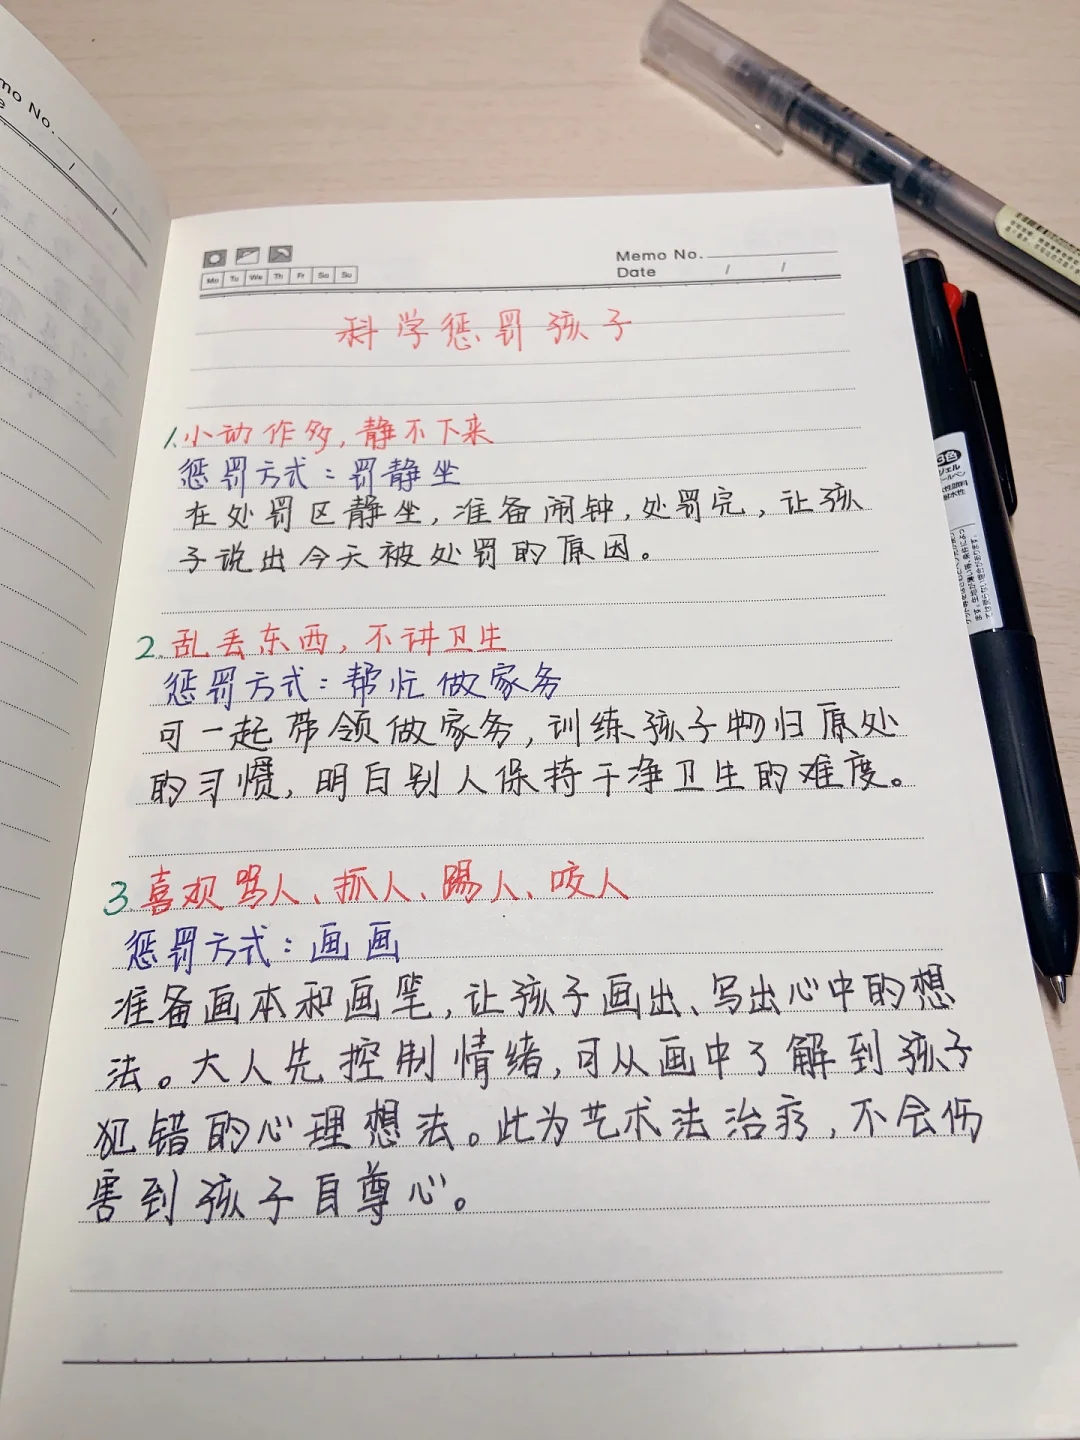 Memo No.
Date / /
Mo Tu We Th Fr Sa Su
科学惩罚孩子
1.小动作多,静不下来
惩罚方式:罚静坐
在处罚区静坐,准备闹钟,处罚完,让孩
子说出今天被处罚的原因。
2.乱丢东西,不讲卫生
惩罚方式:帮忙做家务
可一起带领做家务,训练孩子物归原处
的习惯,明白别人保持干净卫生的难度。
3.喜欢骂人、抓人、踢人、咬人
惩罚方式:画画
准备画本和画笔,让孩子画出、写出心中的想
法。大人先控制情绪,可从画中了解到孩子
犯错的心理想法。此为艺术法治疗,不会伤
害到孩子自尊心。
3色